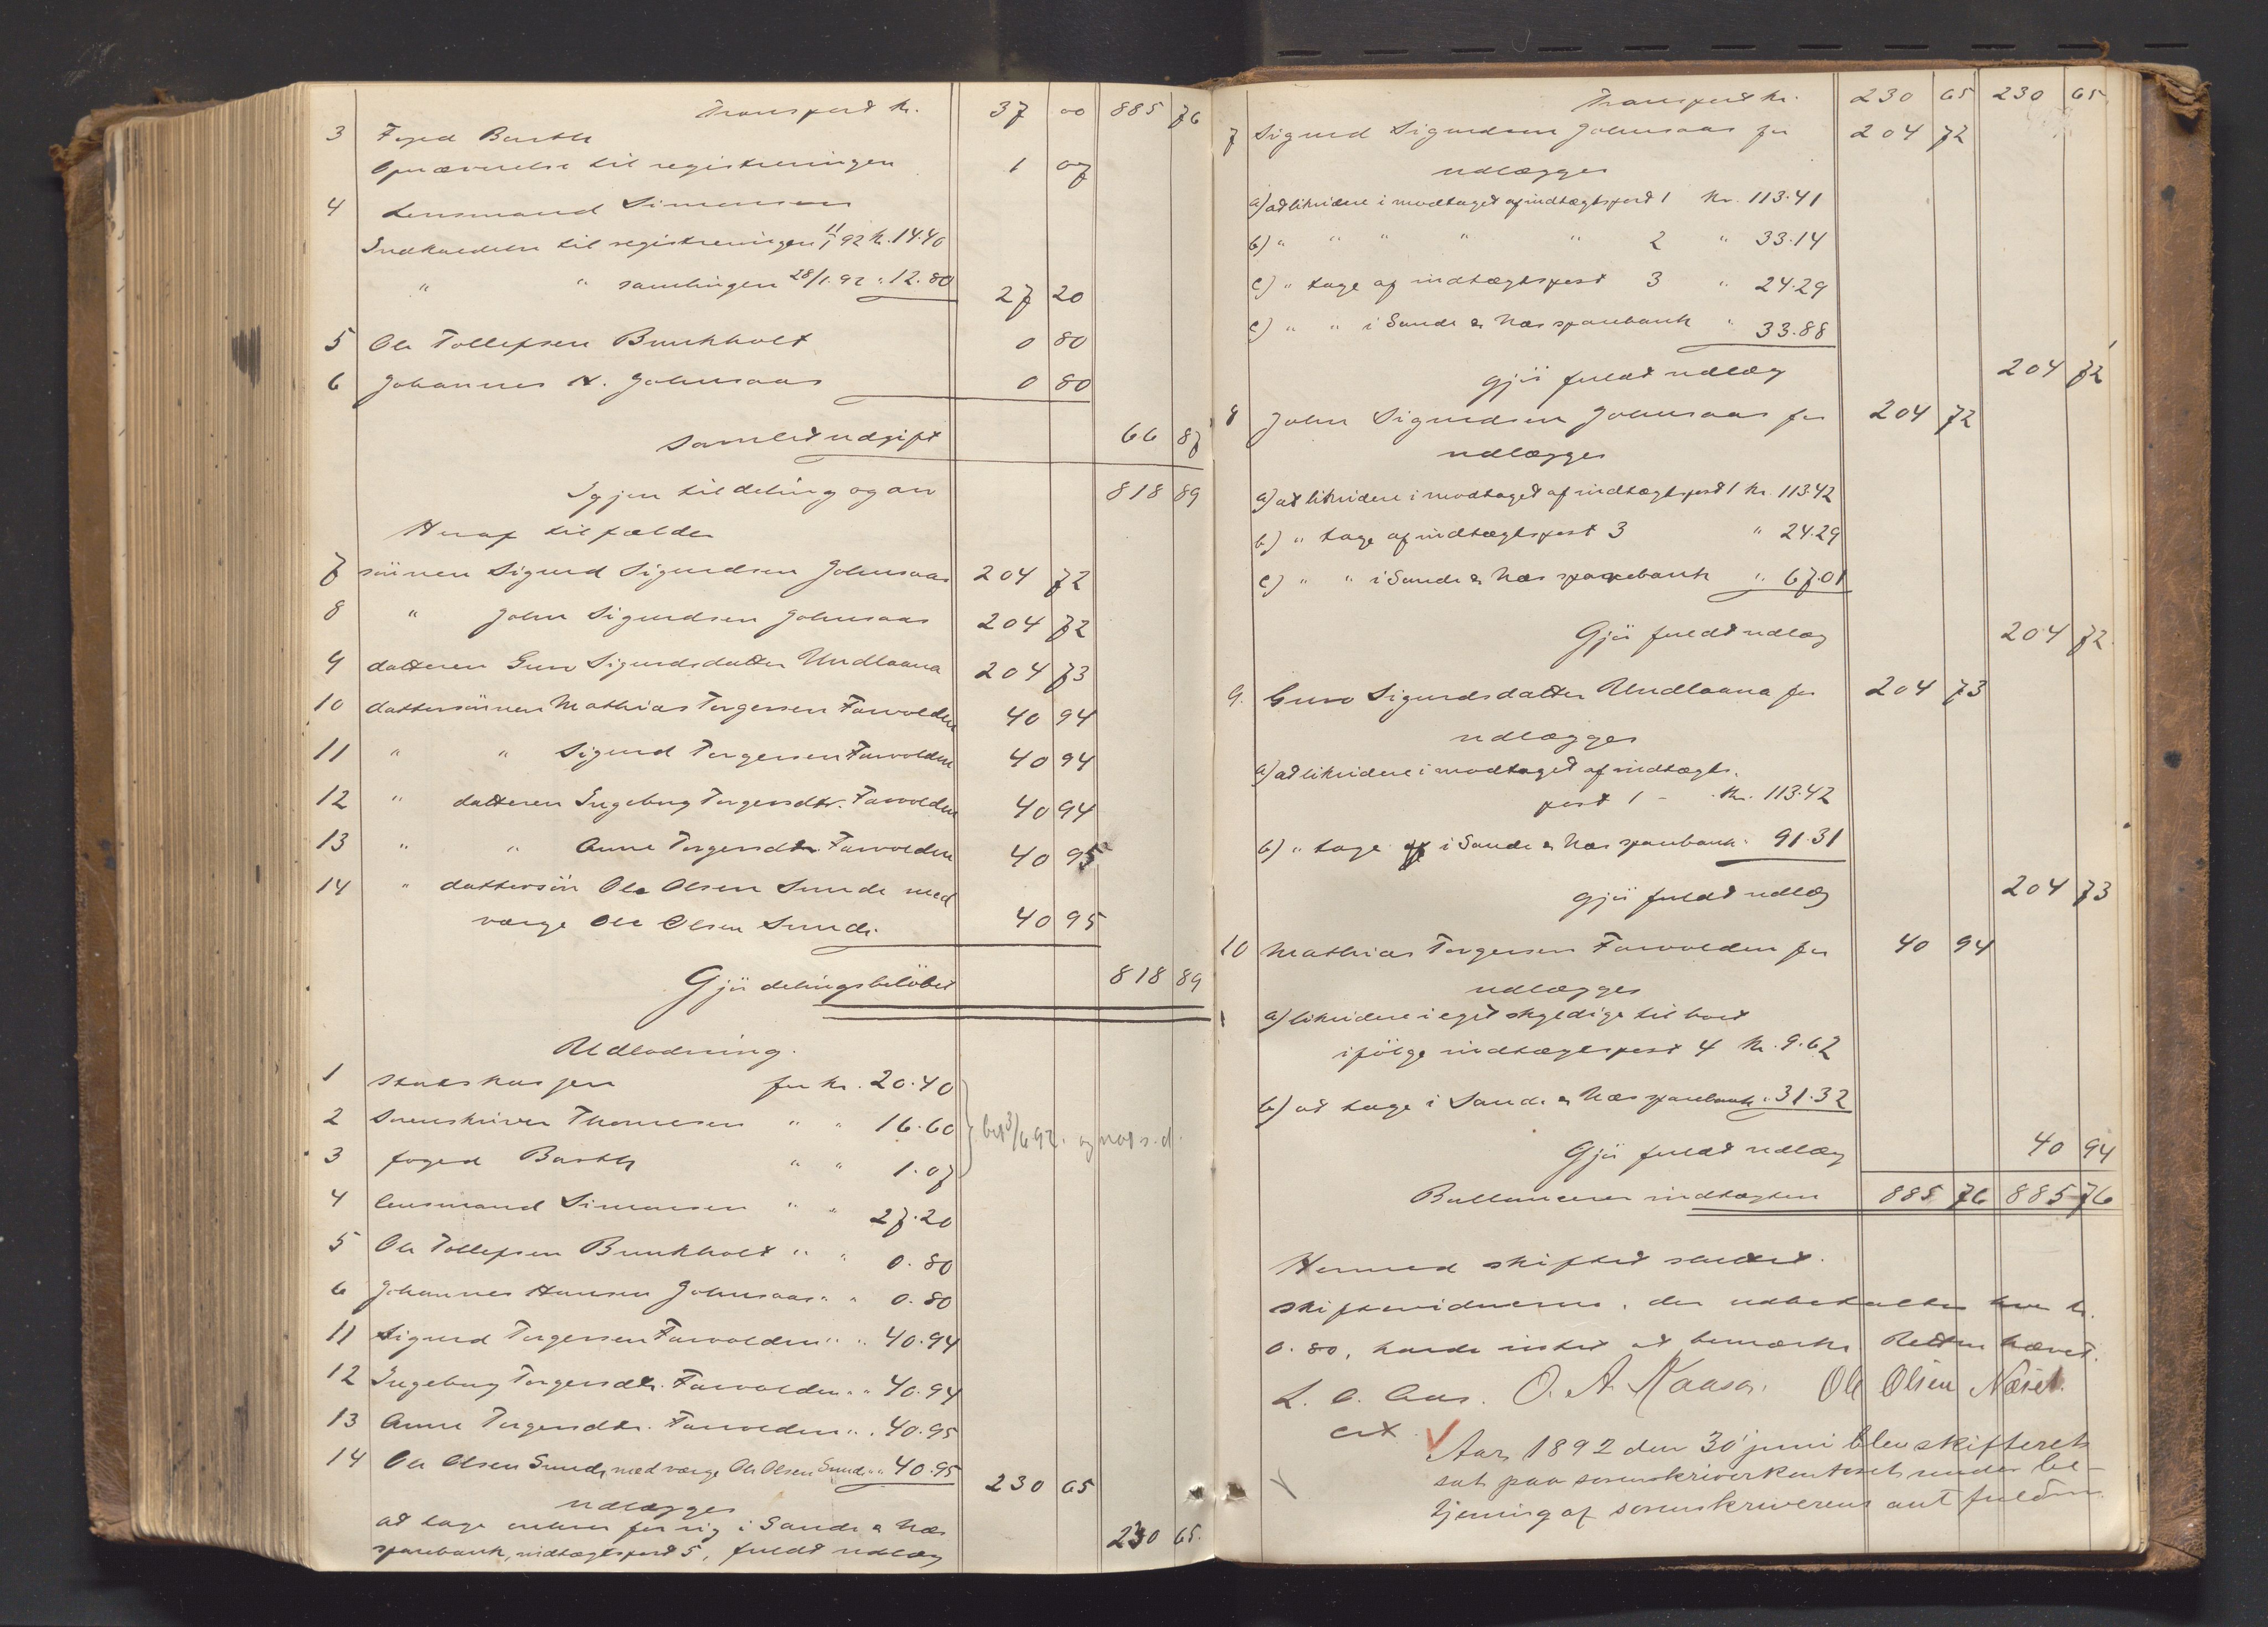 Transport kr. 37 00 885 76
3 Foged Barth
Opnævnelse til registreringen 1 07
4 Lensmand Simonsen
Indkaldelse til registreringen 11/1 92 kr. 14.40
" " samlingen 28/1. 92 " 12.80 27 20
5 Ole Tollefsen Bunkholt 0 80
6 Johannes H. Johnsaas 0 80
Samlet udgift 66 87
Igjen til deling og arv 818 89
Heraf tilfalder
7 sønnen Sigurd Sigurdsen Johnsaas 204 72
8 " John Sigurdsen Johnsaas 204 72
9 datteren Guro Sigurdsdatter Undlaana 204 73
10 dattersønnen Mathias Torgersen Farvolden 40 94
11 " " Sigurd Torgersen Farvolden 40 94
12 " datteren Ingeborg Torgersdtr. Farvolden 40 94
13 " " Anne Torgersdtr. Farvolden 40 95
14 " dattersøn Ole Olsen Sunde med
værge Ole Olsen Sunde. 40 95
Gjør delingsbeløbet 818 89
Udlodning.
1 Statskassen for kr. 20.40
2 Sorenskriver Thomesen " " 16.60
bet 3/6 92. og not s. d.
3 foged Barth " " 1.07
4 lensmand Simonsen " " 27.20
5 Ole Tollefsen Bunkholt " " 0.80
6 Johannes Hansen Johnsaas " " 0.80
11 Sigurd Torgersen Farvolden " " 40.94
12 Ingeborg Torgersdtr. Farvolden " " 40.94
13 Anne Torgersdtr. Farvolden " " 40.95
14 Ole Olsen Sunde med værge Ole Olsen Sunde " " 40.95 230 65
udlægges
at tage enhver for sig i Sande & Næs
sparebank, indtægtspost 5, fuldt udlæg 230 65.
Transport kr. 230 65 230 65
7 Sigurd Sigurdsen Johnsaas for 204 72
udlægges
a) at likvidere i modtaget af indtægtspost 1 kr. 113.41
b) " " " " " 2 " 33.14
c) " tage af indtægtspost 3 " 24.29
c) " " i Sande & Næs sparebank " 33.88
gjør fuldt udlæg 204 72
8 John Sigurdsen Johnsaas for 204 72
udlægges
a) at likvidere i modtaget af indtægtspost 1 kr. 113.42
b) " tage af indtægtspost 3 " 24.29
c) " " i Sande & Næs sparebank " 67.01
Gjør fuldt udlæg 204 72.
9. Guro Sigurdsdatter Undlaana for 204 73
udlægges
a) at likvidere i modtaget af indtægts-
post 1 - kr. 113.42
b) " tage i Sande & Næs sparebank " 91.31
gjør fuldt udlæg 204 73
10 Mathias Torgersen Farvolden for 40 94
udlægges
a) likvidere i eget skyldige til boet
ifølge indtægtspost 4 kr. 9.62
b) at tage i Sande & Næs sparebank " 31.32
Gjør fuldt udlæg 40 94
Ballancerer indtægten 885 76 885 76
Hermed skiftet sluttet.
Skiftevidnerne, der udbetaltes hver kr.
0.80, havde intet at bemærke Retten hævet.
L. C. Aas. O. A. Kaasa. Ole Olsen Næset.
cst
Aar 1892 den 30' juni blev skifteret
sat paa sorenskriverkontoret under be-
tjening af sorenskriverens aut fuldm.